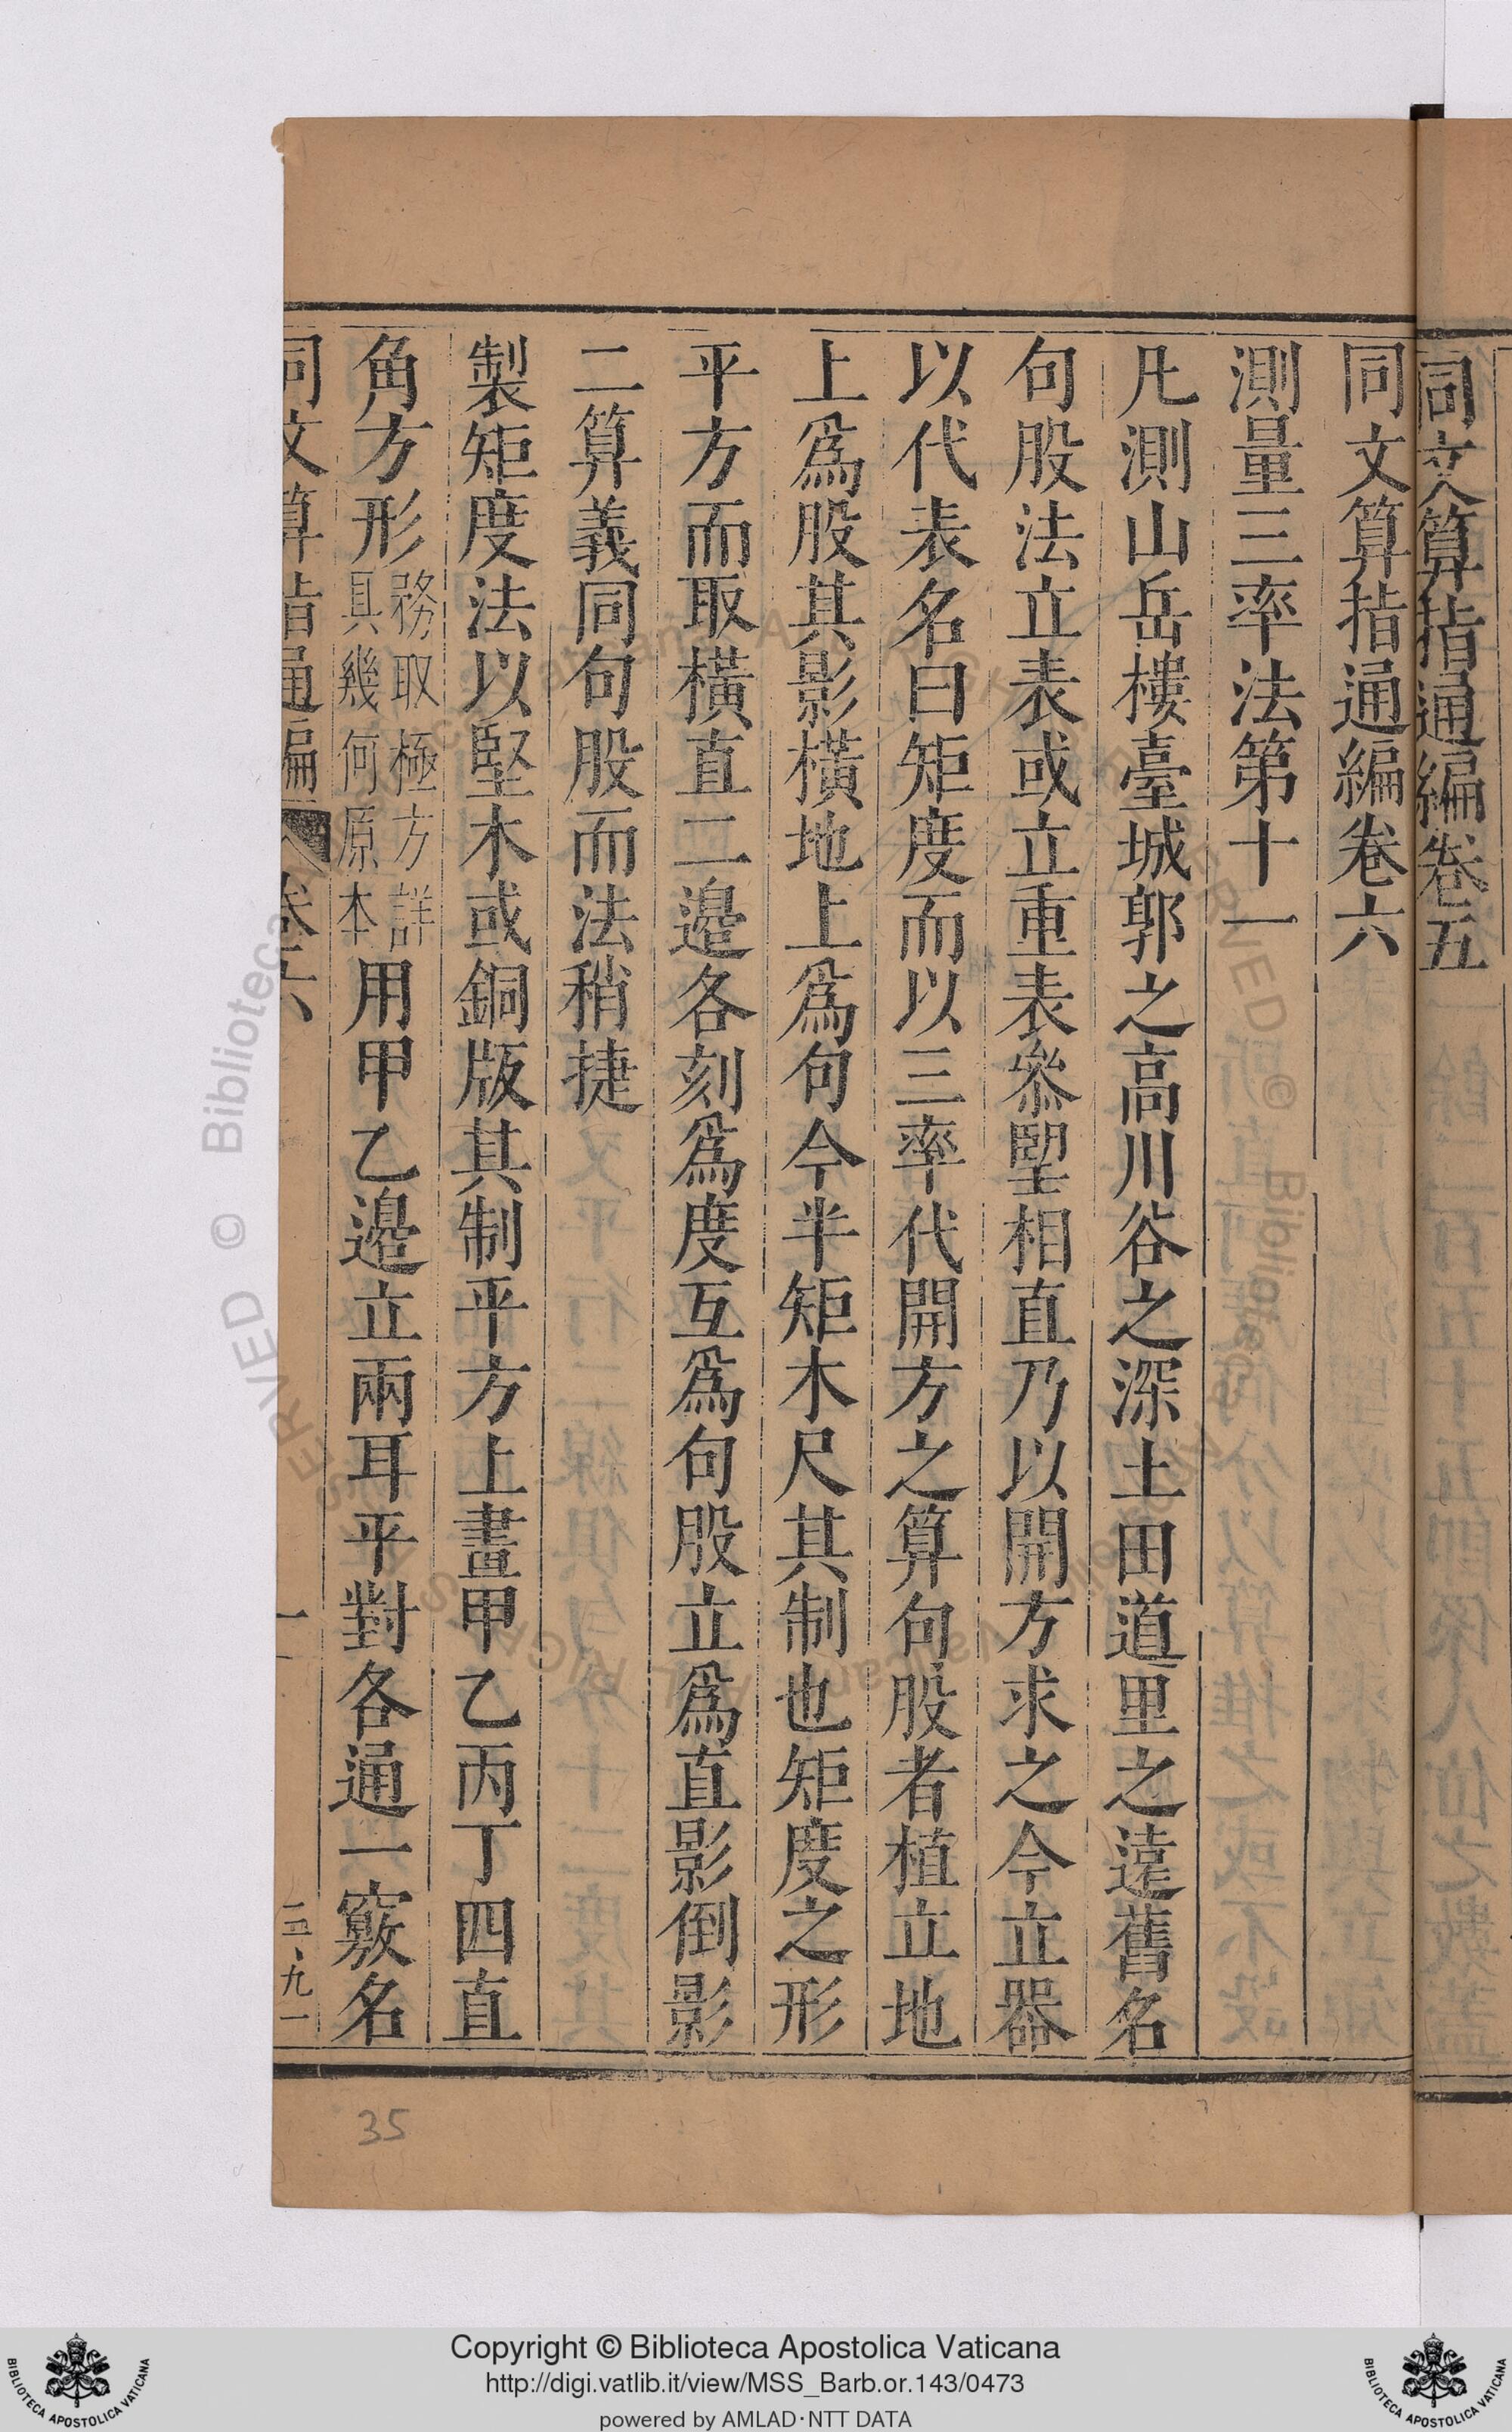 同文算指通編卷五
同文算指通編卷六
測量三率法第十一
凡測山岳樓臺城郭之高川谷之深土田道里之遠舊名
句股法立表或立重表叅朢相直乃以開方求之今立器
以代表名曰矩度而以三率代開方之算句股者植立地
上爲股其影橫地上爲句今半矩木尺其制也矩度之形
平方而取橫直二邉各刻爲度互爲句股立爲直影倒影
二算義同句股而法稍捷
製矩度法以堅木或銅版其制平方上畫甲乙丙丁四直
角方形務取極方詳具幾何原本用甲乙邉立兩耳平對各通一竅名
同文算指通編 卷六 一
35
Copyright © Biblioteca Apostolica Vaticana
http://digi.vatlib.it/view/MSS_Barb.or.143/0473
powered by AMLAD·NTT DATA
BIBLIOTECA APOSTOLICA VATICANA
BIBLIOTECA APOSTOLICA VATICANA